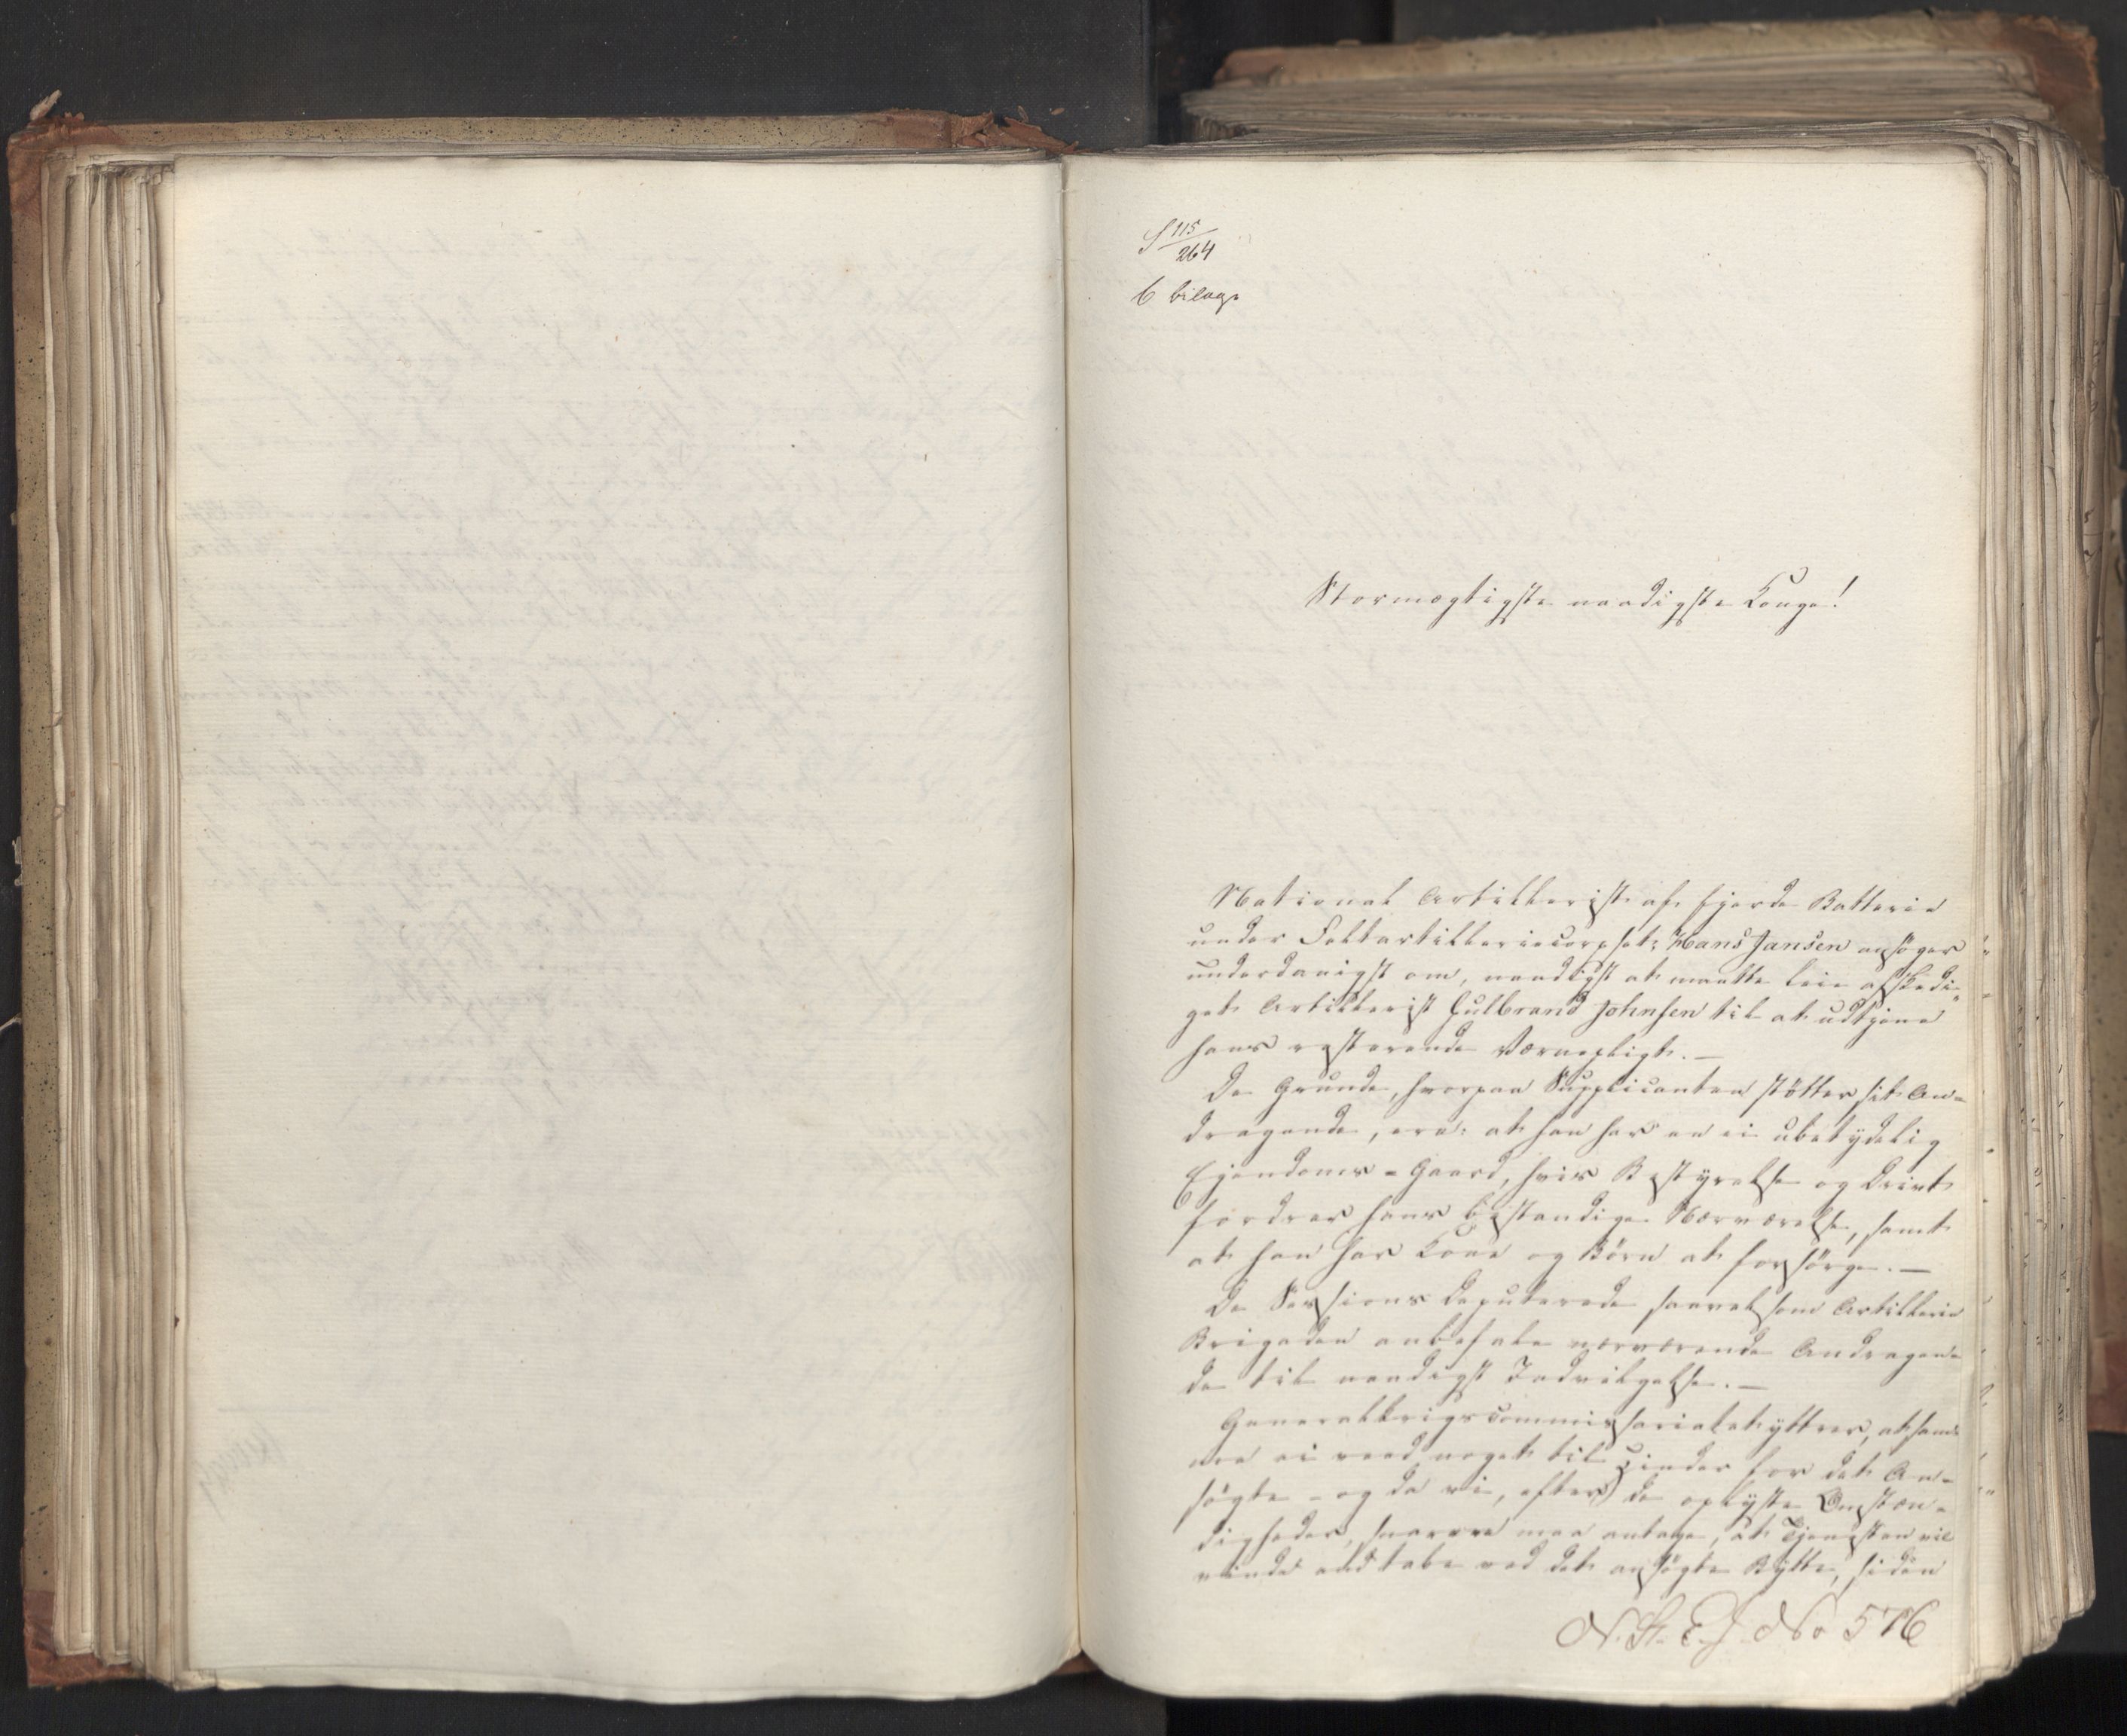 S 115/264
6 bilage
Stormægtigste naadigste Konge!
National Artillerist af fjerde Batterie
under Feltartilleriecorpset: Hans Jansen ansøger
underdanigst om, naadigst at maatte leie afskedi-
get Artillerist Gulbrand Johnsen til at udtjene
hans resterende Værnepligt. —
De Grunde, hvorpaa Supplicanten støtter sit An-
dragende, ere: at han har en ei ubetydelig
Eiendoms-Gaard, hvis Bestyrelse og Drivt
fordrer hans bestandige Nærværelse, samt
at han har Kone og Børn at forsørge. —
De Sessions Deputerede saavelsom Artillerie
Brigaden anbefale nærværende Andragen-
de til naadigst Indvilgelse. —
Generalkrigscommissariatet yttrer, at sam-
me ei veed noget til Hinder for det An-
søgte – og da vi, efter de oplyste Omstæn-
digheder, snarere maa antage, at Tjenesten vil
vinde end tabe ved det ansøgte Bytte, siden
N. St. E. J. No 576